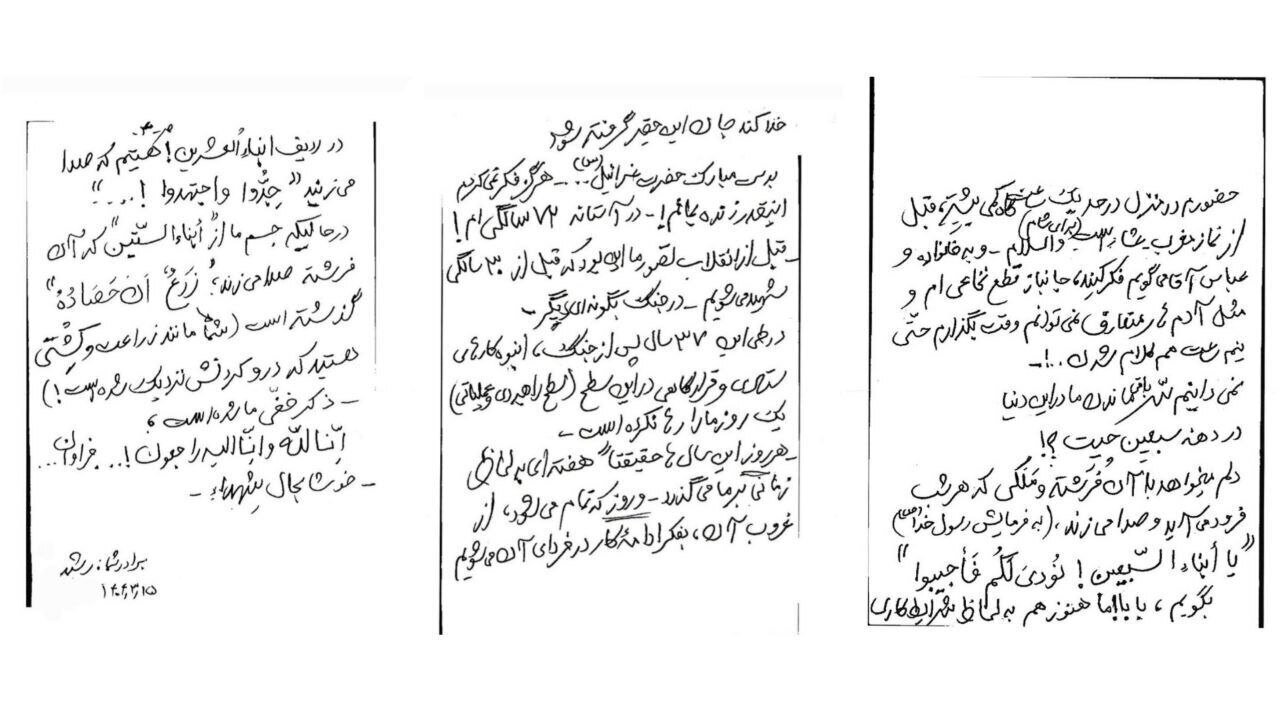 حضورم در منزل در حد یک ساعت گاه کمی بیشتر، قبل
از نماز مغرب عشاء است (برای شام) والسلام - و به خانواده و
عباس آقا می‌گویم فکر کنید، جانباز قطع نخاعی ام و
مثل آدم های متعارف نمی‌توانم وقت بگذارم حتّی
نیم ساعت هم کلام شدن ...! -
نمی دانیم سرّ باقیماندن ما در این دنیا
در دهنه سبعین چیست ؟!
دلم میخواهد به آن فُرَشته و مَلَکی که هر شب
فرود می آید و صدا می زند، (به فرمایش رسول خدا (ص))
"یا أبناءِ السّبعین ! نُودیَ لَکُم فَأجیبوا"
بگویم ، بابا! ما هنوز هم به لحاظ شرایط کاری
خدا کند جان این حقیر گرفته شود
بدست مبارک حضرت عزرائیل (س) ... - هرگز فکر نمی کردم
اینقدر زنده بمانم ! - در آستانه ۷۲ سالگی ام !
- قبل از انقلاب تصور ما این بود که قبل از ۳۰ سالگی
شهید می شویم - در جنگ بگونه ای دیگر -
در طی این ۳۷ سال پس از جنگ ، انبوه کارهای
ستادی و قرارگاهی در این سطح (سطح راهبردی و عملیاتی)
یک روز ما را رها نکرده است -
- هر روز این سال ها حقیقتاً هفته ای به لحاظ
زمانی بر ما می گذرد - و روز که تمام می شود ، از
غروب آن ، بفکر ادامهٔ کار در فردای آن می شویم
در ردیف ابناءُ العشرین ! هستیم که صدا
می زنید "جِدُّوا واجتهدوا ! ...."
در حالیکه جسم ما از "أبناءِ السّتّین" که آن
فرشته صدا می زند : "زَرعٌ آنَ حَصادُهُ"
گذشته است (شما مانند زراعت و کِشتی
هستید که درو کردنش نزدیک شده است !)
- ذکر خفیّ ما شده است ،
اِنّا لِلّه و انّا الیه راجعون ! ... فراوان ...
- خوشا بحال شهداء -
برادر شما: رشید
۱۴۰۴٫۳٫۱۵